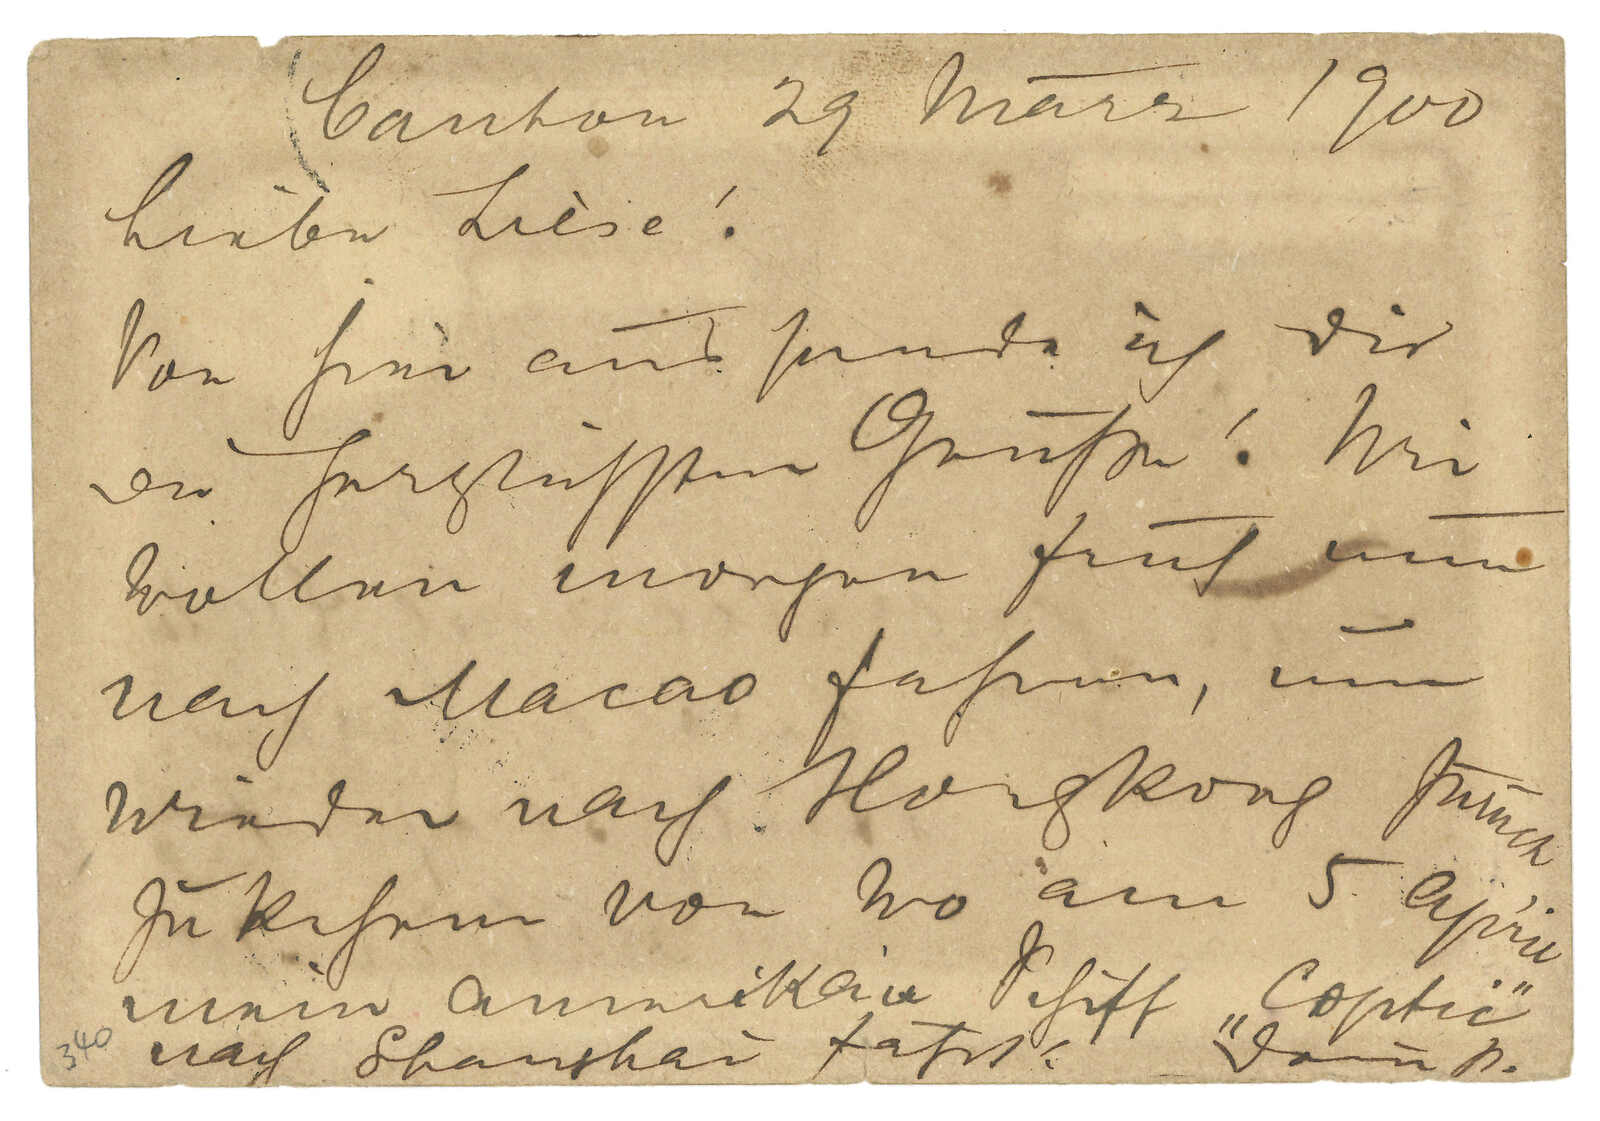 Canton 29 März 1900
Liebe Liese!
Von hier aus sende ich Dir
die herzlichsten Grüße! Wir
wollen morgen früh nun
nach Macao fahren, um
wieder nach Hongkong zurück
zu kehren von wo am 5 April
mein amerikan Schiff „Coptic"
nach Shanghai fährt.
340